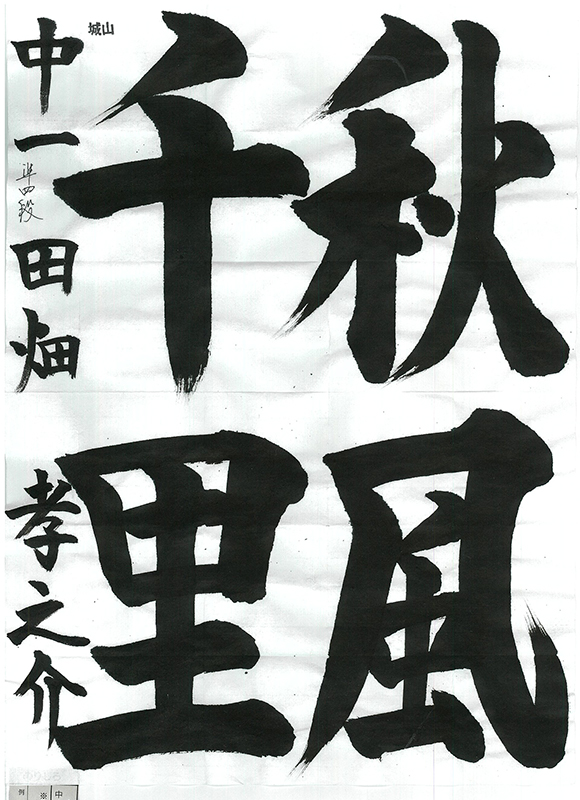 秋風
千里
城山
中一 準四段 田畑 孝之介
のりしろ
例 ※ 中